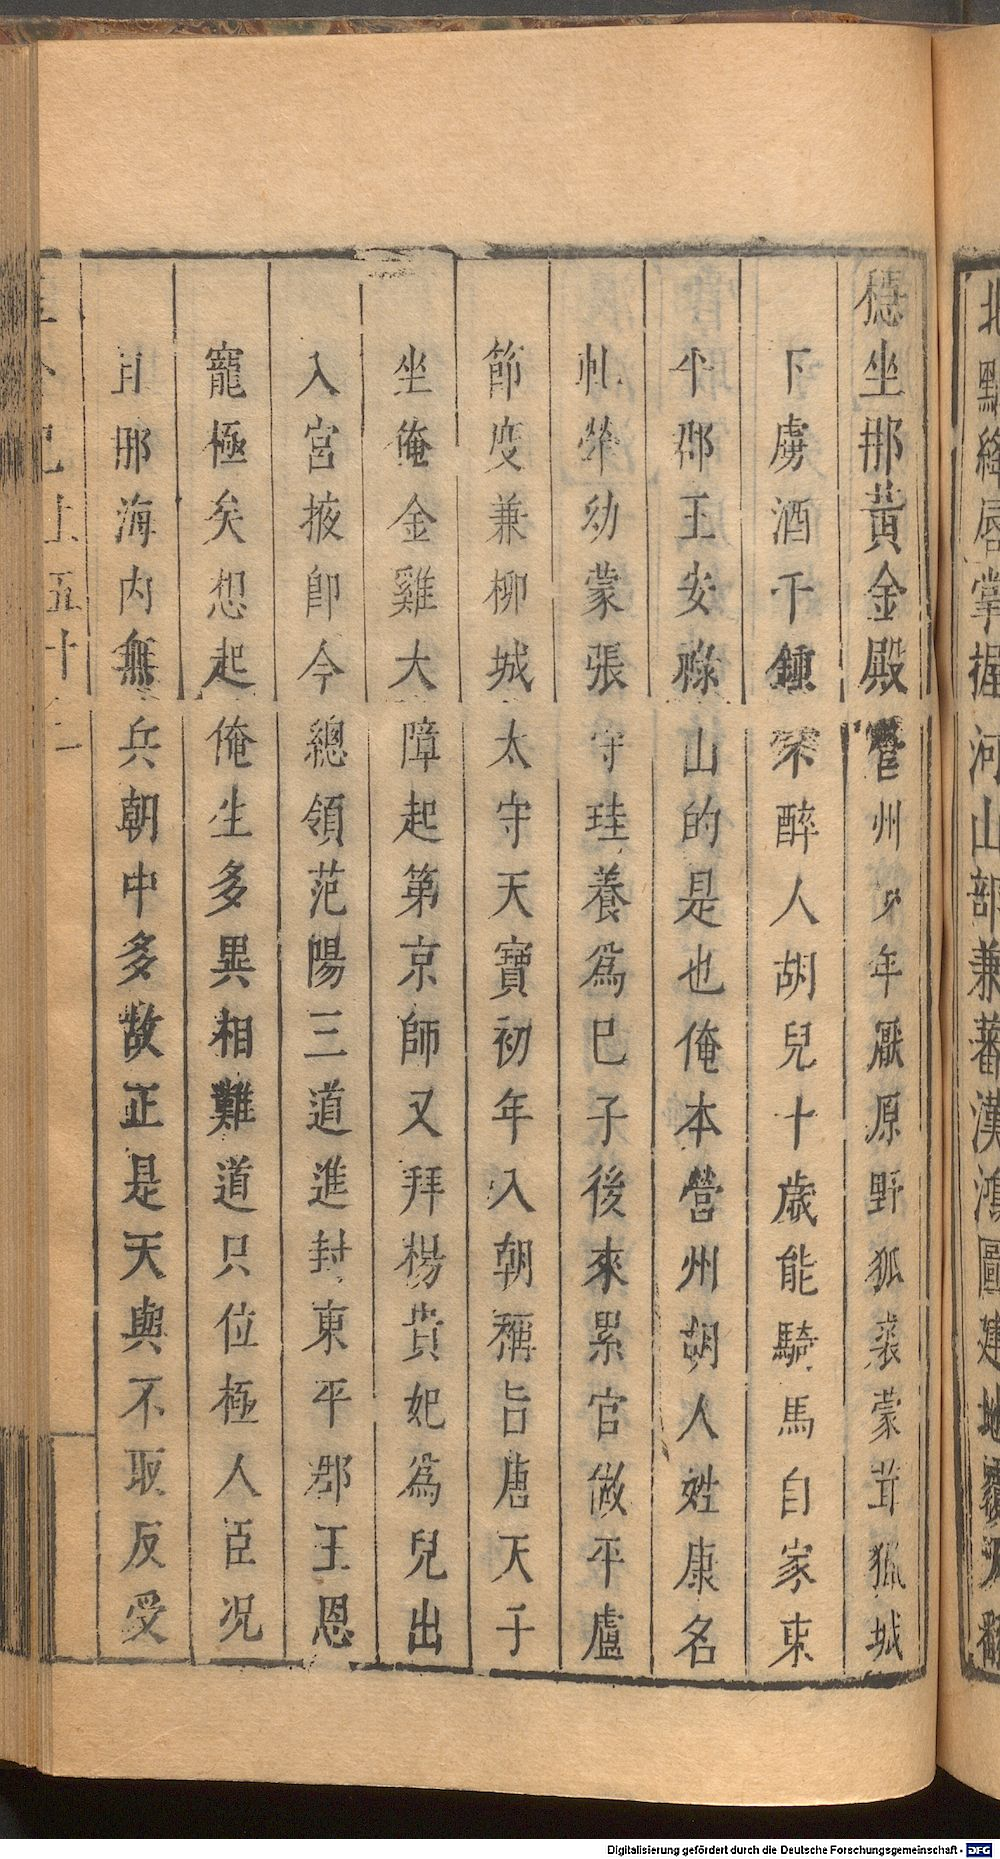 北點絳唇掌握河山部兼蕃漢鴻圖建地覆天翻
穩坐那黃金殿營州少年厭原野狐裘蒙茸獵城
下虜酒千鍾不醉人胡兒十歲能騎馬自家東
平郡王安祿山的是也俺本營州胡人姓康名
軋犖幼蒙張守珪養爲己子後來累官做平盧
節度兼柳城太守天寶初年入朝稱旨唐天子
坐俺金雞大障起第京師又拜楊貴妃爲兒出
入宮掖卽今總領范陽三道進封東平郡王恩
寵極矣想起俺生多異相難道只位極人臣况
且那海內無兵朝中多故正是天與不取反受
Digitalisierung gefördert durch die Deutsche Forschungsgemeinschaft - DFG